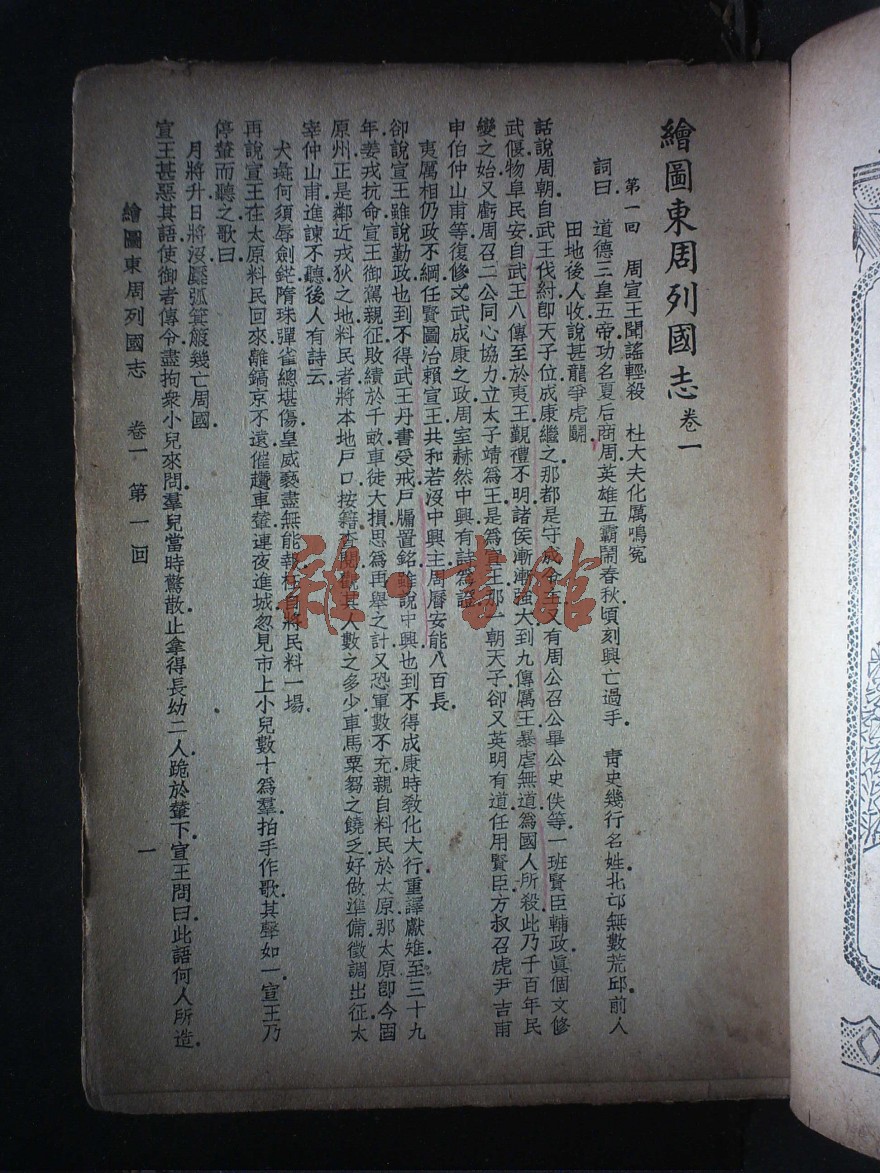 繪圖東周列國志卷一
第一回　周宣王聞謠輕殺　杜大夫化厲鳴冤
詞曰　道德三皇五帝功名夏后商周英雄五霸鬧春秋頃刻興亡過手．　靑史幾行名姓北邙無數荒邱前人
田地後人收說甚龍爭虎鬭．
話說周朝自武王伐紂卽天子位成康繼之那都是守成令主又有周公召公畢公史佚等一班賢臣輔政眞個文修
武偃物阜民安自武王八傳至於夷王覲禮不明諸侯漸漸强大到九傳厲王暴虐無道爲國人所殺此乃千百年民
變之始又虧周召二公同心協力立太子靖爲王是爲宣王那一朝天子卻又英明有道任用賢臣方叔召虎尹吉甫
申伯仲山甫等復修文武成康之政周室赫然中興有詩爲證．
夷厲相仍政不綱任賢圖治賴宣王共和若沒中興主周曆安能八百長．
卻說宣王雖說勤政也到不得武王丹書受戒戶牖置銘雖說中興也到不得成康時敎化大行重譯獻雉至三十九
年姜戎抗命宣王御駕親征敗績於千畝車徒大損思爲再舉之計又恐軍數不充親自料民於太原那太原卽今固
原州正是鄰近戎狄之地料民者將本地戶口按籍查閱觀其人數之多少車馬粟芻之饒乏好做準備徵調出征太
宰仲山甫進諫不聽後人有詩云．
犬彘何須辱劍鋩隋珠彈雀總堪傷皇威褻盡無能報枉自將民料一場．
再說宣王在太原料民回來離鎬京不遠催趲車輦連夜進城忽見市上小兒數十爲羣拍手作歌其聲如一宣王乃
停輦而聽之歌曰．
月將升日將沒檿弧箕箙幾亡周國．
宣王甚惡其語使御者傳令盡拘衆小兒來問羣兒當時驚散止拿得長幼二人跪於輦下宣王問曰此語何人所造．
繪圖東周列國志　卷一　第一回　一
雜·書館